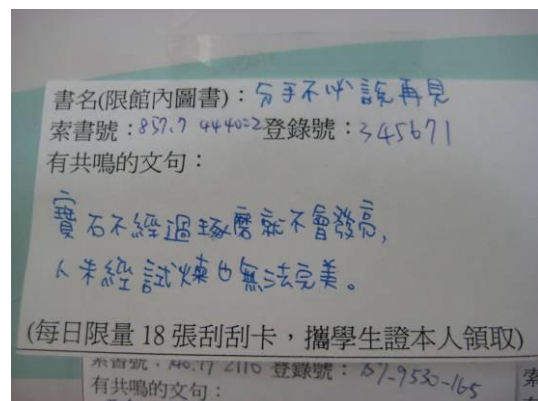 書名(限館內圖書)：分手不必說再見
索書號：857.7 4440=2登錄號：345671
有共鳴的文句：
寶石不經過琢磨就不會發亮，
人未經試煉也無法完美。
(每日限量 18 張刮刮卡，攜學生證本人領取)
索書號： 2110 登錄號： -9530-165
有共鳴的文句：
索